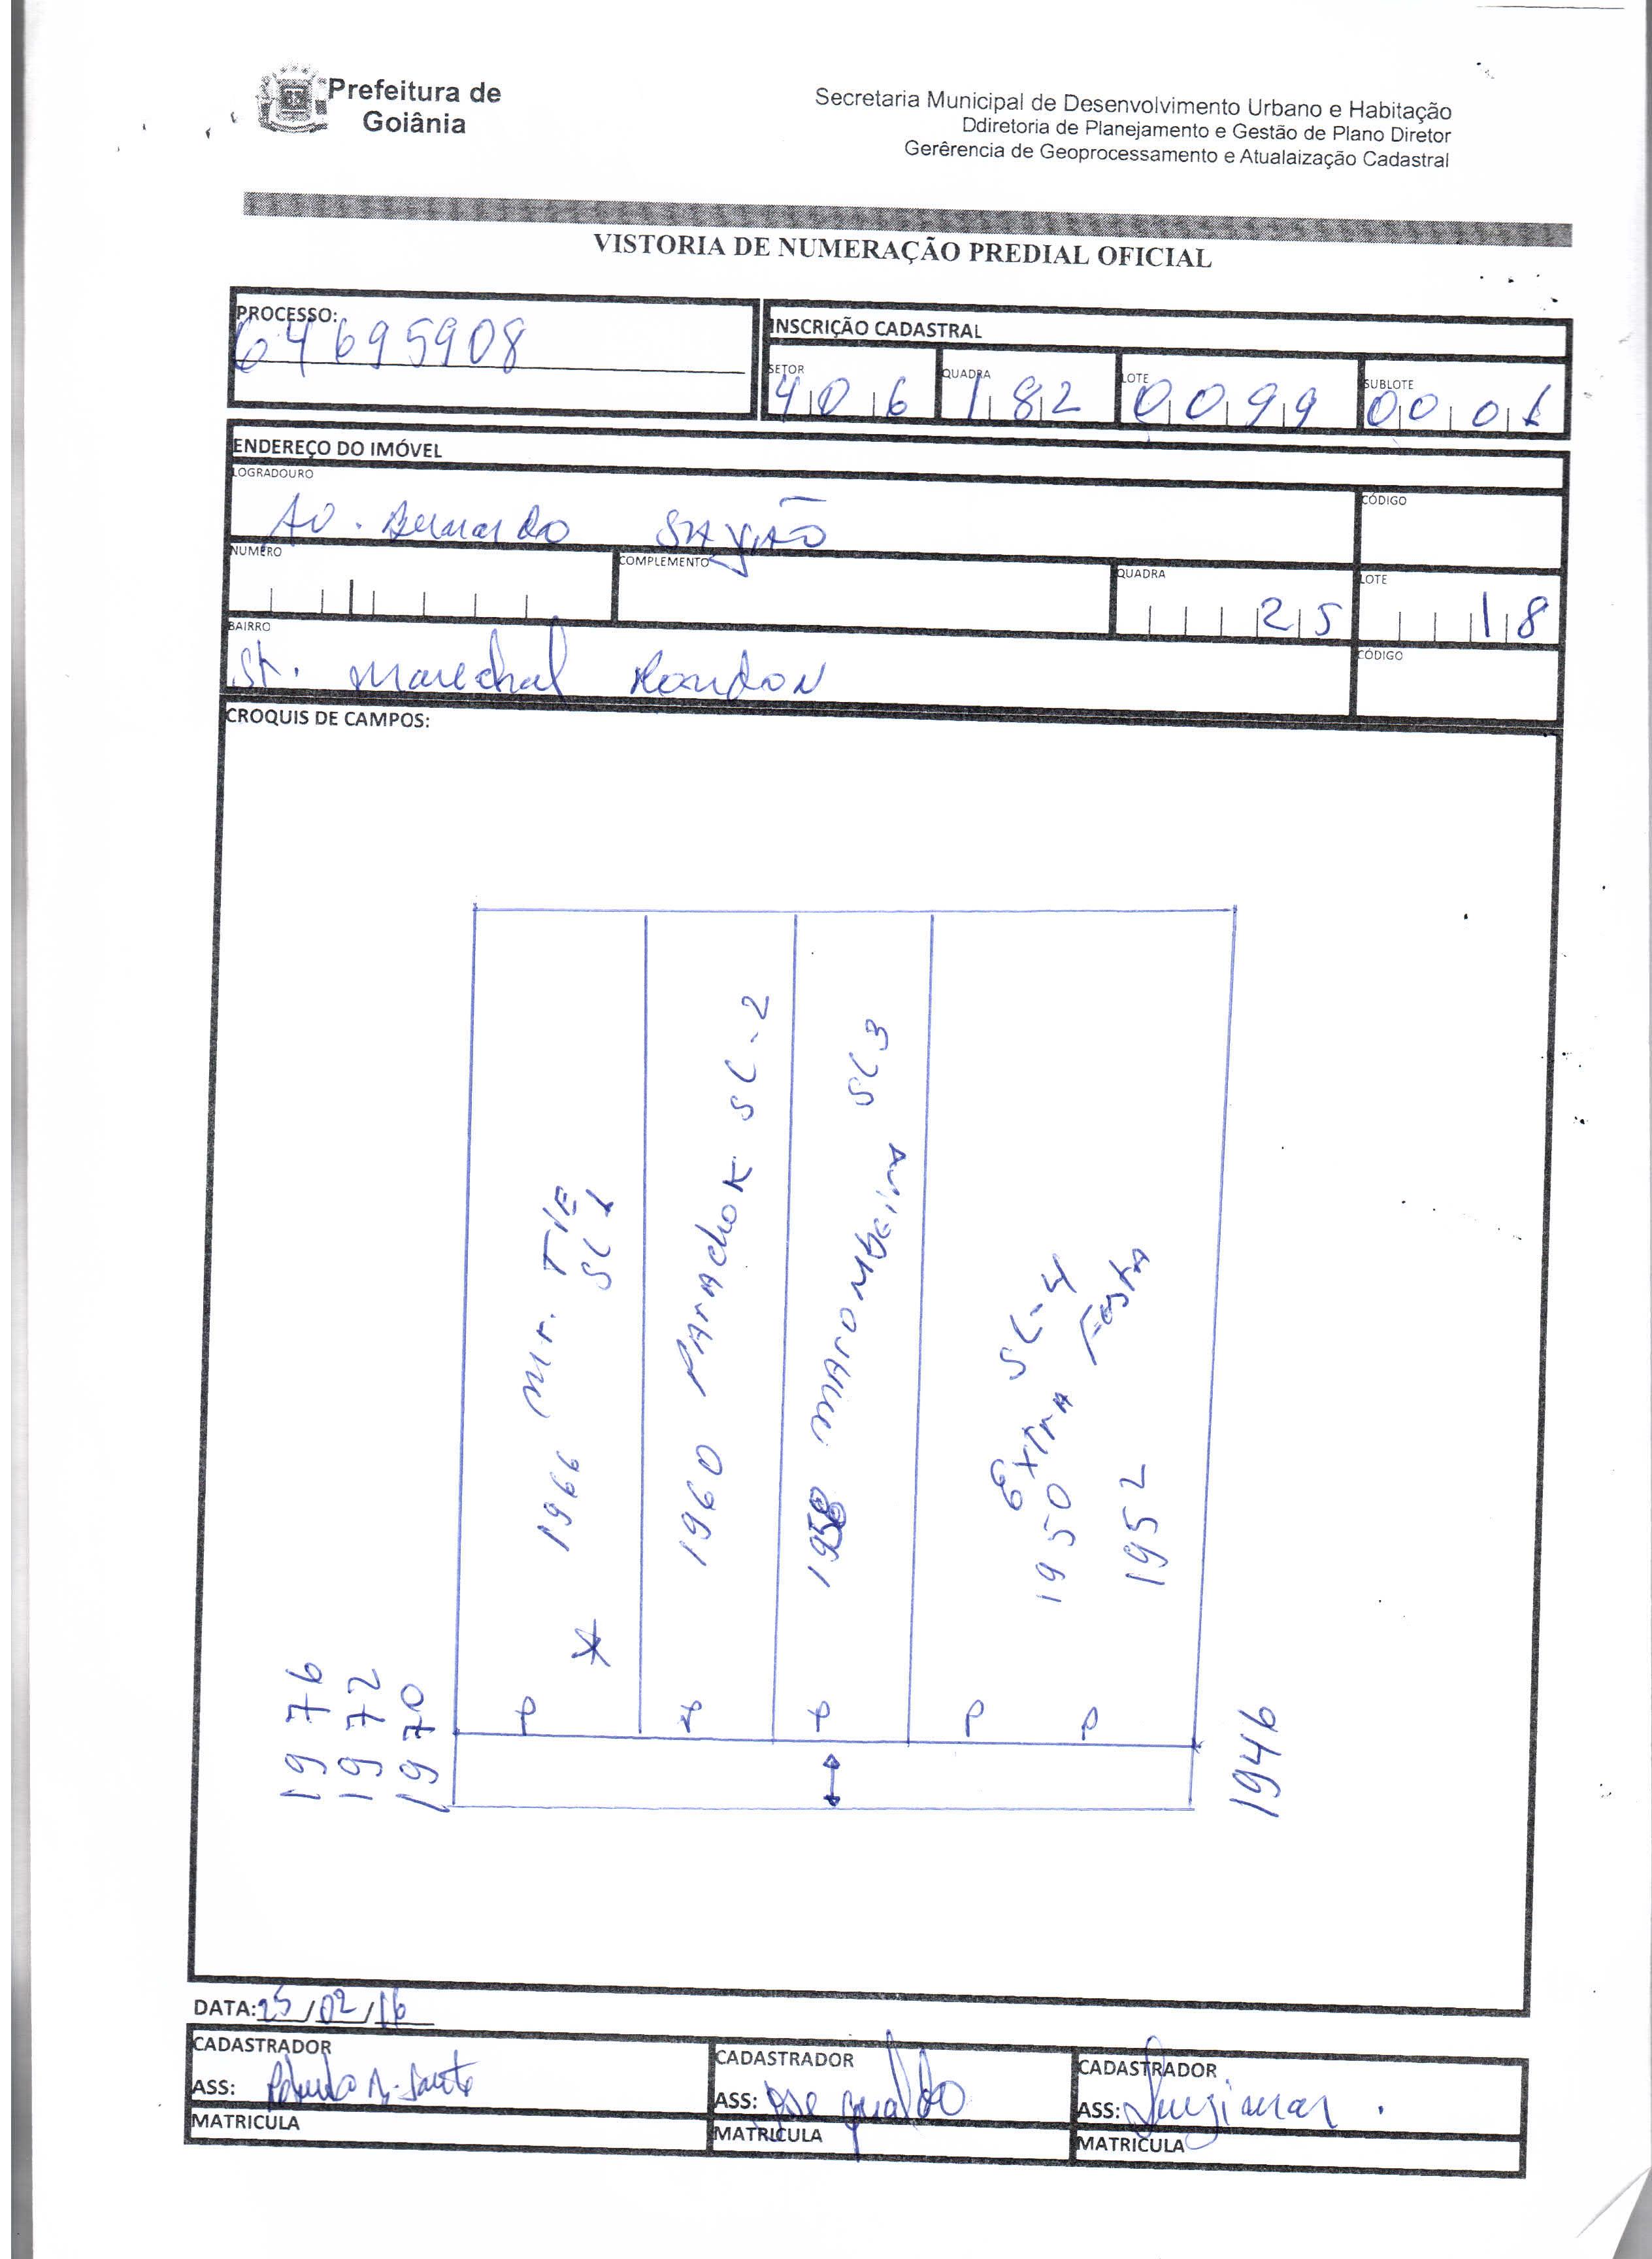 Prefeitura de
Goiânia
Secretaria Municipal de Desenvolvimento Urbano e Habitação
Ddiretoria de Planejamento e Gestão de Plano Diretor
Gerêrencia de Geoprocessamento e Atualaização Cadastral
VISTORIA DE NUMERAÇÃO PREDIAL OFICIAL
PROCESSO:
64695908
INSCRIÇÃO CADASTRAL
SETOR QUADRA LOTE SUBLOTE
406 182 0099 0001
ENDEREÇO DO IMÓVEL
LOGRADOURO CÓDIGO
AV. Bernardo SAYÃO
NUMERO COMPLEMENTO QUADRA LOTE
25 18
BAIRRO CÓDIGO
St. Marechal Rondon
CROQUIS DE CAMPOS:
1976
1972
1970
1966 Mr. TIE
SL 1
1960 PArAchoK SL-2
1958 MAROMBeirA SL3
EXTrA SL-4
1950 FestA
1952
1946
DATA: 25/02/16
CADASTRADOR CADASTRADOR CADASTRADOR
ASS: ASS: Jose ASS: Luzimar
MATRICULA MATRICULA MATRICULA